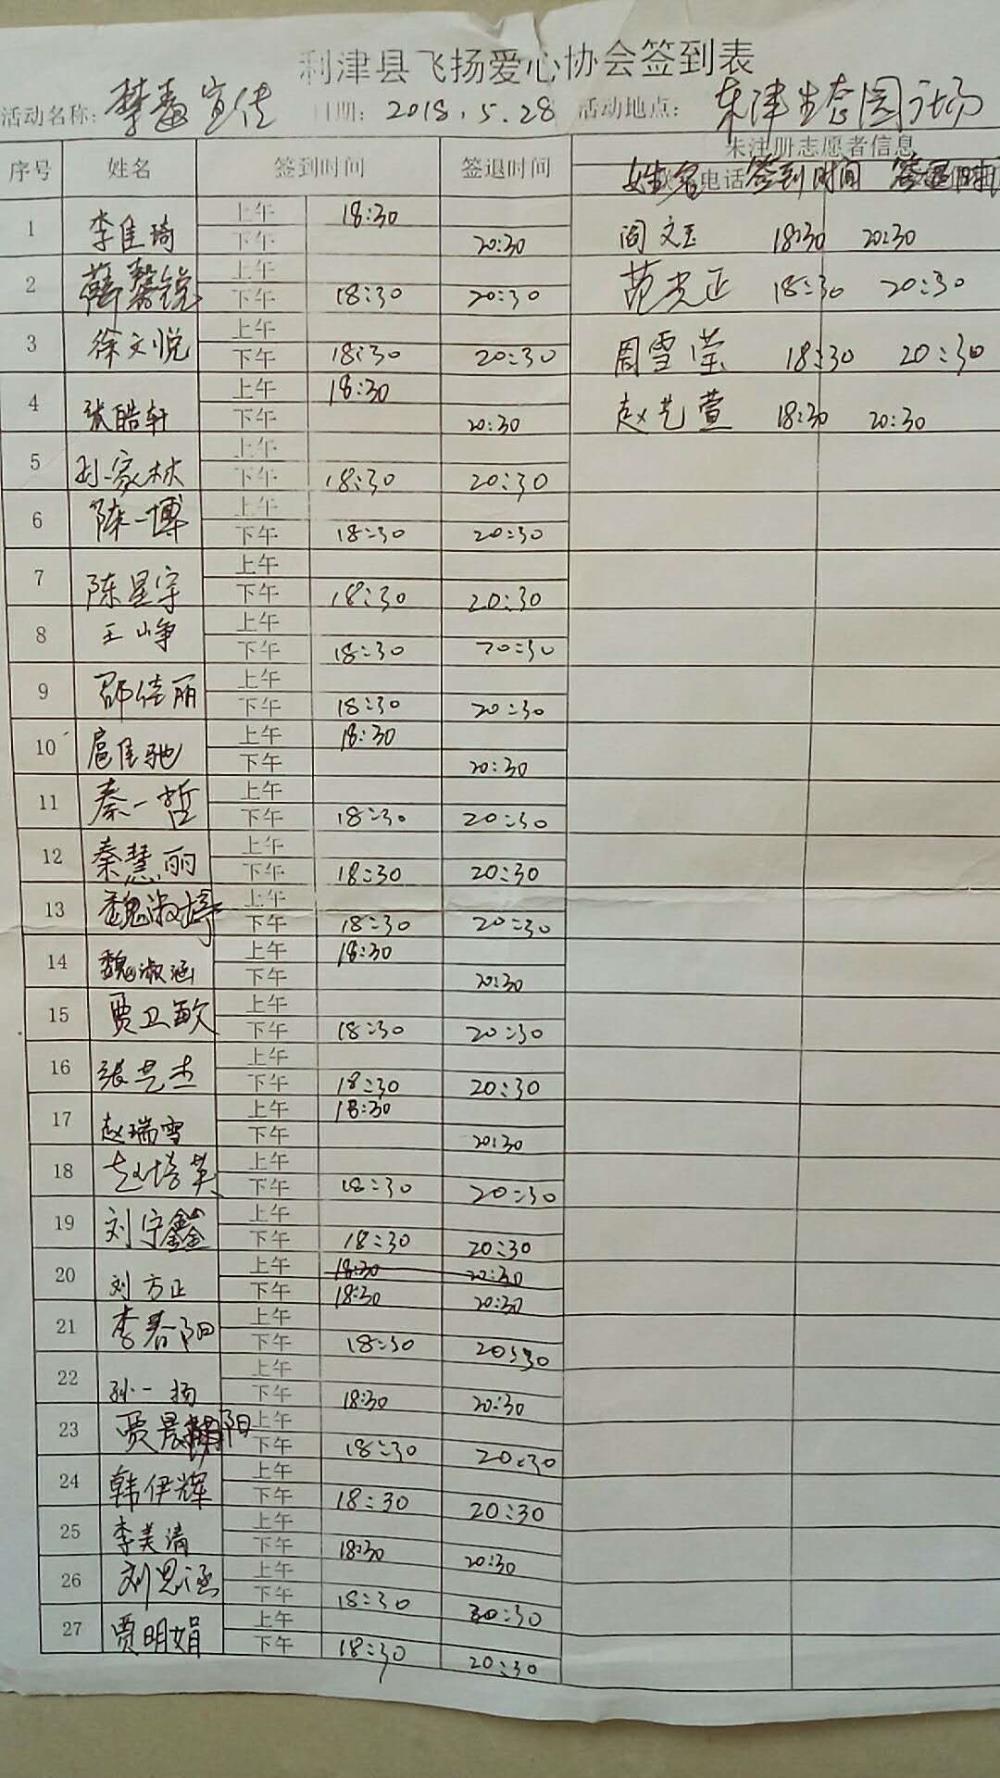 利津县飞扬爱心协会签到表
活动名称: 禁毒宣传 日期: 2018.5.28 活动地点: 东津生态园广场
序号 姓名 签到时间 签退时间 未注册志愿者信息
姓名 电话 签到时间
1 李佳琦 上午 18:30
下午 20:30 闫文玉 18:30 20:30
2 韩馨锐 上午
下午 18:30 20:30 范光正 18:30 20:30
3 徐文悦 上午
下午 18:30 20:30 周雪莹 18:30 20:30
4 张皓轩 上午 18:30
下午 20:30 赵艺萱 18:30 20:30
5 孙家林 上午
下午 18:30 20:30
6 陈一博 上午
下午 18:30 20:30
7 陈星宇 上午
下午 18:30 20:30
8 王峥 上午
下午 18:30 20:30
9 邵佳丽 上午
下午 18:30 20:30
10 扈佳驰 上午 18:30
下午 20:30
11 秦一哲 上午
下午 18:30 20:30
12 秦慧丽 上午
下午 18:30 20:30
13 魏淑婷 上午
下午 18:30 20:30
14 魏淑涵 上午 18:30
下午 20:30
15 贾卫敏 上午
下午 18:30 20:30
16 张艺杰 上午
下午 18:30 20:30
17 赵瑞雪 上午 18:30
下午 20:30
18 赵培英 上午
下午 18:30 20:30
19 刘宇鑫 上午
下午 18:30 20:30
20 刘方正 上午 18:30 20:30
下午 18:30 20:30
21 李春阳 上午
下午 18:30 20:30
22 孙一扬 上午
下午 18:30 20:30
23 贾晨阳 上午
下午 18:30 20:30
24 韩伊辉 上午
下午 18:30 20:30
25 李美清 上午
下午 18:30 20:30
26 刘思涵 上午
下午 18:30 20:30
27 贾明娟 上午
下午 18:30 20:30